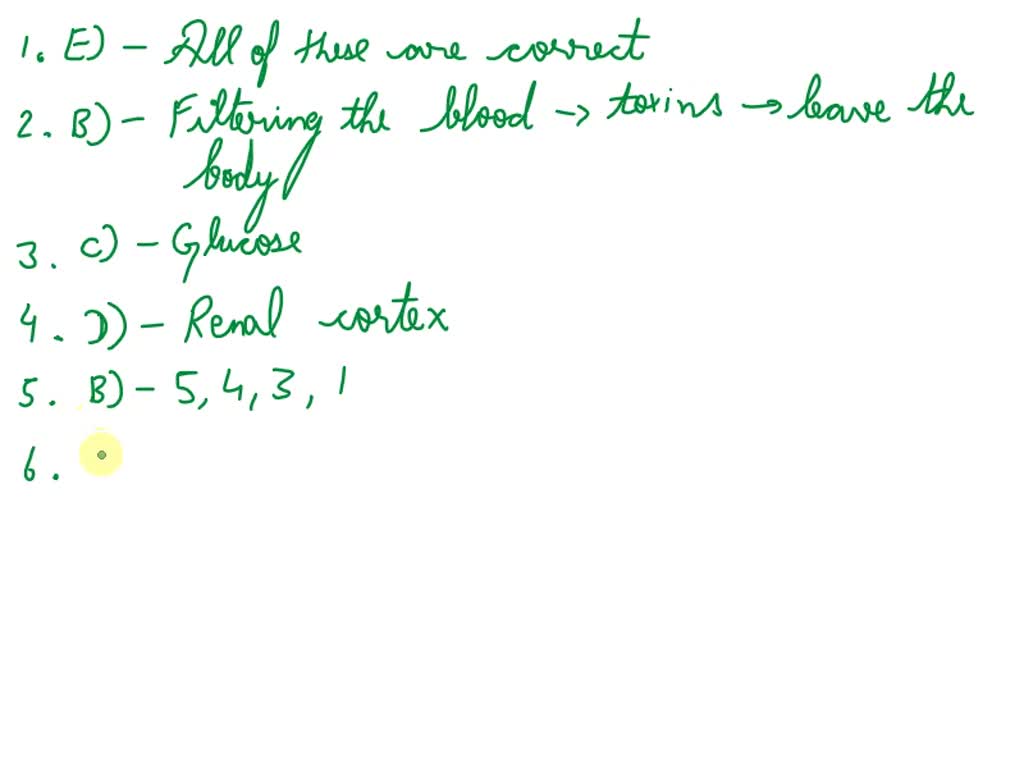 1. E) - All of these are correct
2. B) - Filtering the blood -> toxins -> leave the
body
3. C) - Glucose
4. D) - Renal cortex
5. B) - 5, 4, 3, 1
6.